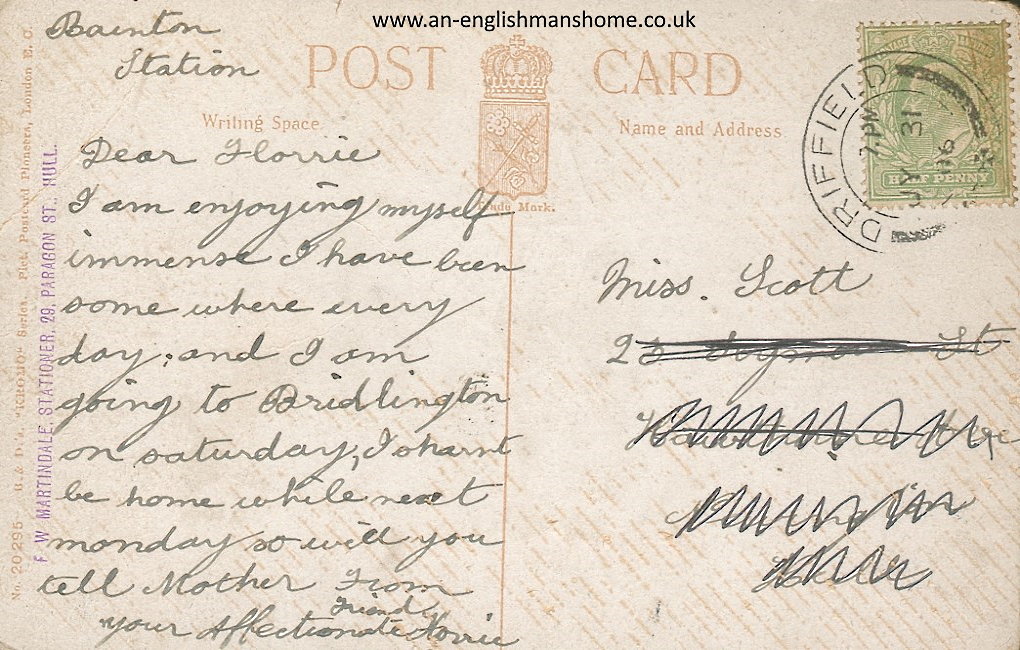 www.an-englishmanshome.co.uk
Bainton
Station
POST CARD
Writing Space
Name and Address
Trade Mark.
Dear Florrie
I am enjoying myself
immense I have been
some where every
day, and I am
going to Bridlington
on saturday, I sharnt
be home while next
monday so will you
tell Mother From
Friend
your Affectionate Horrie
DRIFFIELD
7. PM
JY 31
HALF PENNY
Miss. Scott
St
No. 20295 B. & D.'s "KROMO" Series. Pict. Postcard Pioneers, London E. C.
F. W. MARTINDALE, STATIONER, 29, PARAGON ST., HULL.